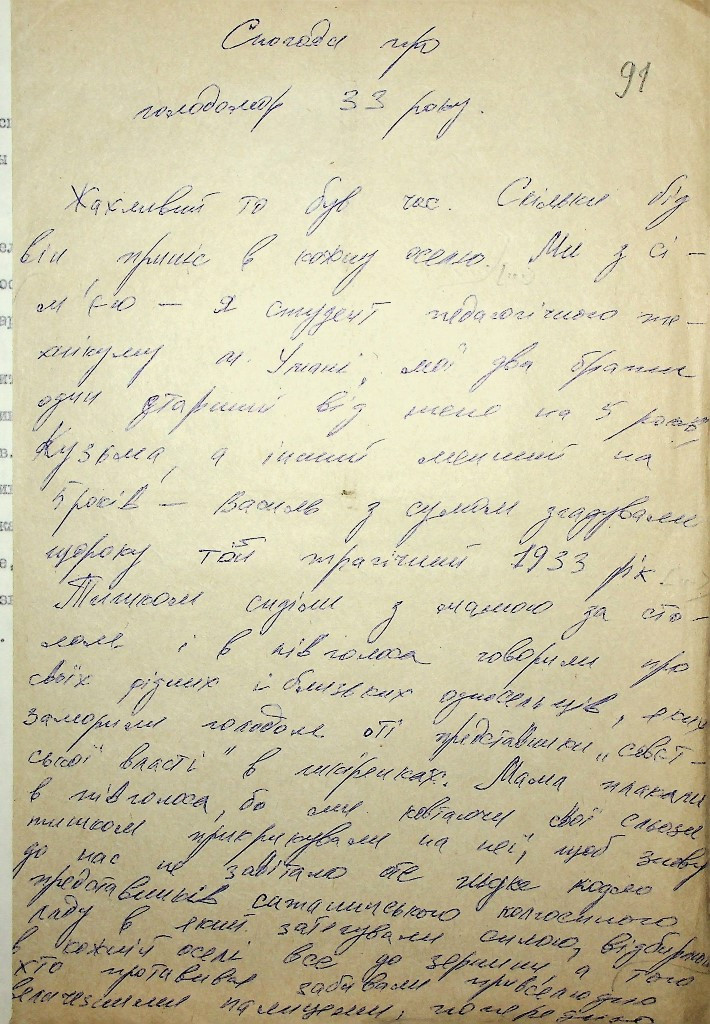 Спогади про
91
голодомор 33 року.
Жахливий то був час. Скільки бід
він приніс в кожну оселю. Ми з сі-
м'єю — я студент педагогічного те-
хнікуму м. Умані, мої два брати
один старший від мене на 5 років,
Кузьма, а інший менший на
5 років — Василь з сумом згадували
щороку той трагічний 1933 рік.
Тишком сиділи з мамою за сто-
лом і в півголоса говорили про
своїх рідних і близьких односельців, яких
заморили голодом оті представники „совєт-
ської власті" в шкірянках. Мама плакали
в півголоса, бо ми ковтаючи свої сльози
тишком прикрикували на неї, щоб знову
до нас не завітало оте гидке кодло
представників сталинського колгоспного
ладу в який затягували силою, відбирали
в кожній оселі все до зернини а того
хто противився забивали привселюдно
величезними палицями, попередньо